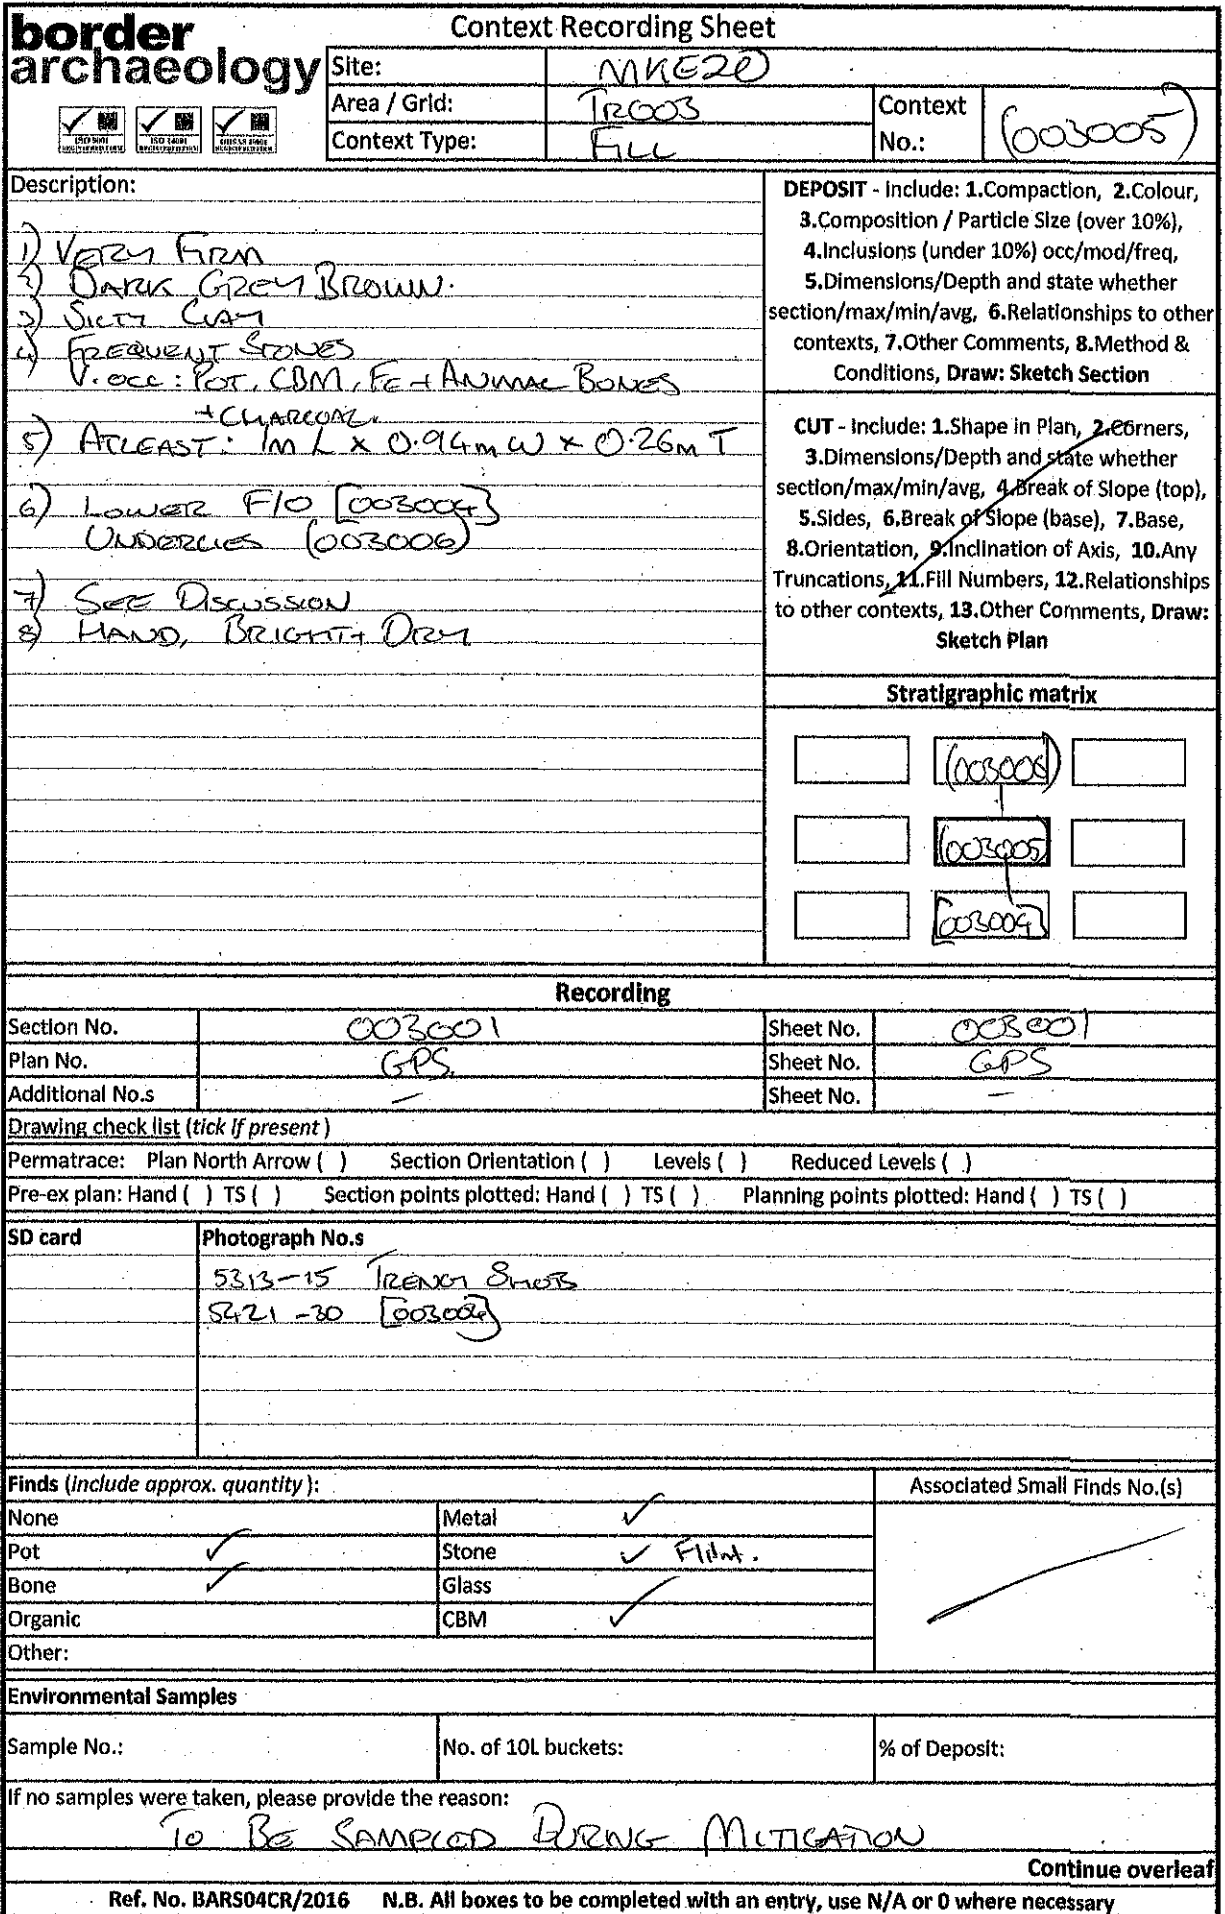 border
archaeology
Context Recording Sheet
Site: MKE20
Area / Grid: TR003
Context Type: FILL
Context No.: (003005)
Description:
1) VERY FIRM
2) DARK GREY BROWN.
3) SILTY CLAY
4) FREQUENT STONES
V. OCC: POT, CBM, FE + ANIMAL BONES
+ CHARCOAL.
5) ATLEAST: 1m L x 0.94m W x 0.26m T
6) LOWER F/O [003004]
UNDERLIES (003006)
7) SEE DISCUSSION
8) HAND, BRIGHT + DRY
DEPOSIT - Include: 1.Compaction, 2.Colour,
3.Composition / Particle Size (over 10%),
4.Inclusions (under 10%) occ/mod/freq,
5.Dimensions/Depth and state whether
section/max/min/avg, 6.Relationships to other
contexts, 7.Other Comments, 8.Method &
Conditions, Draw: Sketch Section
CUT - Include: 1.Shape in Plan, 2.Corners,
3.Dimensions/Depth and state whether
section/max/min/avg, 4.Break of Slope (top),
5.Sides, 6.Break of Slope (base), 7.Base,
8.Orientation, 9.Inclination of Axis, 10.Any
Truncations, 11.Fill Numbers, 12.Relationships
to other contexts, 13.Other Comments, Draw:
Sketch Plan
Stratigraphic matrix
(003006)
(003005)
[003004]
Recording
Section No. 003001 Sheet No. 003001
Plan No. GPS Sheet No. GPS
Additional No.s — Sheet No. —
Drawing check list (tick if present)
Permatrace: Plan North Arrow ( ) Section Orientation ( ) Levels ( ) Reduced Levels ( )
Pre-ex plan: Hand ( ) TS ( ) Section points plotted: Hand ( ) TS ( ) Planning points plotted: Hand ( ) TS ( )
SD card Photograph No.s
5313-15 TRENCH SHOTS
5421-30 [003004]
Finds (include approx. quantity): Associated Small Finds No.(s)
None Metal ✓
Pot ✓ Stone ✓ Flint.
Bone ✓ Glass
Organic CBM ✓
Other:
Environmental Samples
Sample No.: No. of 10L buckets: % of Deposit:
If no samples were taken, please provide the reason:
TO BE SAMPLED DURING MITIGATION
Continue overleaf
Ref. No. BARS04CR/2016 N.B. All boxes to be completed with an entry, use N/A or 0 where necessary